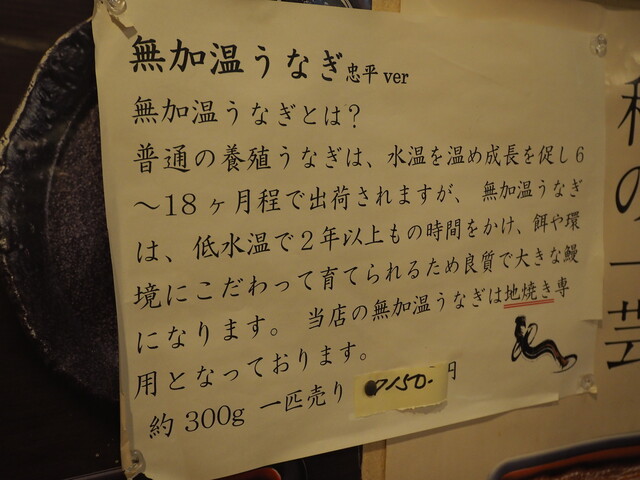 無加温うなぎ忠平ver
無加温うなぎとは?
普通の養殖うなぎは、水温を温め成長を促し6
～18ヶ月程で出荷されますが、無加温うなぎ
は、低水温で2年以上もの時間をかけ、餌や環
境にこだわって育てられるため良質で大きな鰻
になります。当店の無加温うなぎは地焼き専
用となっております。
約300g 一匹売り 7150-円
の一芸